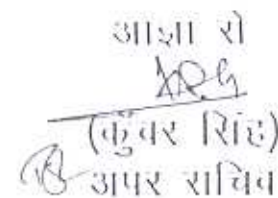 आज्ञा से
(कुँवर सिंह)
अपर सचिव